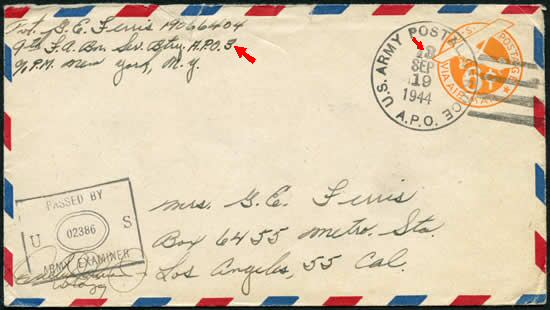 Pvt. G. E. Ferris 19066404
9th F.A. Bn. Sev. Btry. A.P.O. 3
℅ P.M. New York, N.Y.
U.S. ARMY POSTAL
A.P.O.
SEP
19
1944
POSTAGE
VIA AIR MAIL
PASSED BY
U S
02386
ARMY EXAMINER
Mrs. G. E. Ferris
Box 6455 Metro. Sta.
Los Angeles, 55 Cal.